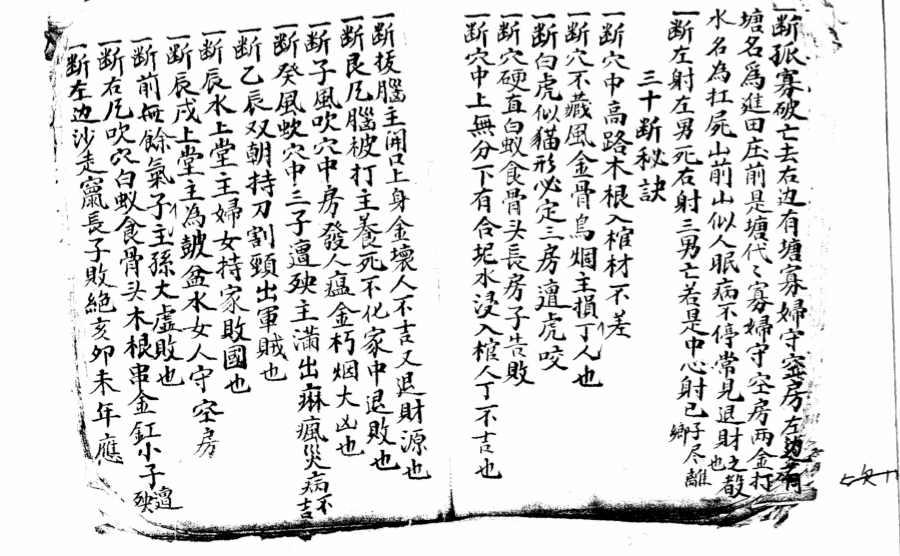 一断孤寡破亡去右边有塘寡婦守空房左边有
塘名為進田庄前是塘代〻寡婦守空房两金打
水名為扛屍山前山似人眠病不停常見退財之散也
一断左射左男死右射三男亡若是中心射己子尽離鄉
三十断秘訣
一断穴中高路木根入棺材不差
一断穴不藏風金骨烏烟主損丁人也
一断白虎似猫形必定三房遭虎咬
一断穴硬直白蚁食骨头長房子告敗
一断穴中上無分下有合坭水浸入棺人丁不吉也
一断拔腦主開口上身金壞人不吉又退財源也
一断艮凡腦被打主養死不化家中退敗也
一断子風吹穴中房發人瘟金朽烟大凶也
一断癸風吹穴中三子遭殃主滿出痳瘋災病不吉
一断乙辰双朝持刀割頸出軍賊也
一断辰水上堂主婦女持家敗國也
一断辰戌上堂主為鼓盆水女人守空房
一断前無餘氣子主孫大虛敗也
一断右凡吹穴白蚁食骨头木根串金釭小子遭殃
一断左边沙走竄長子敗絕亥卯未年應